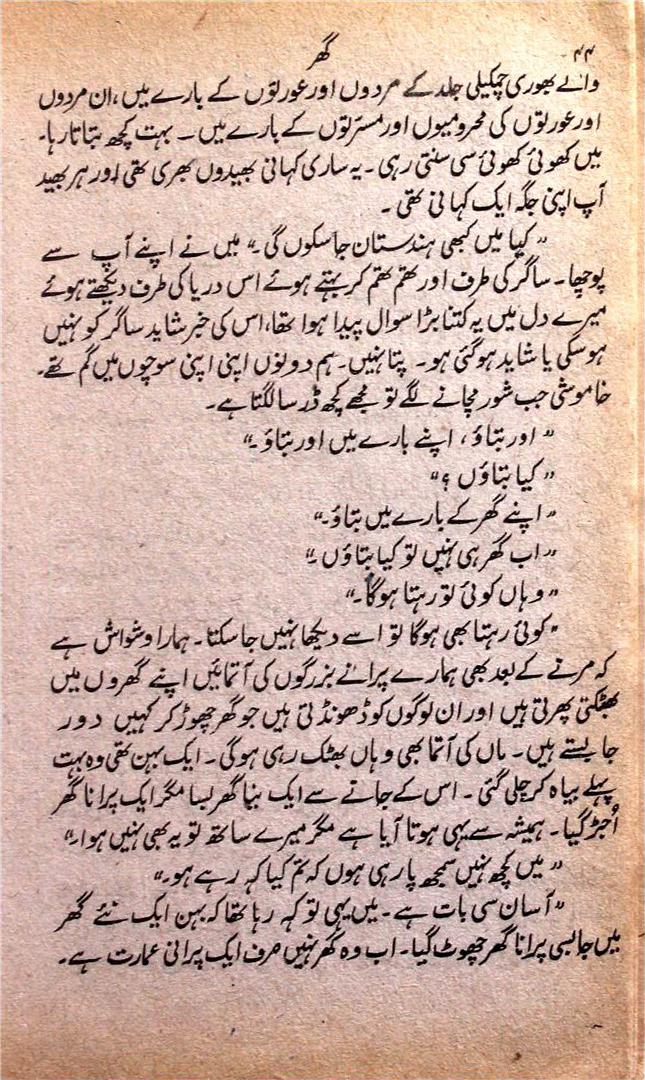 ۴۴
گھر
والے بھوری چمکیلی جلد کے مردوں اور عورتوں کے بارے میں، ان مردوں
اور عورتوں کی محرومیوں اور مسرّتوں کے بارے میں ۔ بہت کچھ بتاتا رہا۔
میں کھوئی کھوئی سی سنتی رہی ۔ یہ ساری کہانی بھیدوں بھری تھی اور ہر بھید
آپ اپنی جگہ ایک کہانی تھی ۔
” کیا میں کبھی ہندستان جا سکوں گی ۔“ میں نے اپنے آپ سے
پوچھا ۔ ساگر کی طرف اور تھم تھم کر بہتے ہوئے اس دریا کی طرف دیکھتے ہوئے
میرے دل میں یہ کتنا بڑا سوال پیدا ہوا تھا، اس کی خبر شاید ساگر کو نہیں
ہو سکی یا شاید ہو گئی ہو ۔ پتا نہیں ۔ ہم دونوں اپنی اپنی سوچوں میں گم تھے۔
خاموشی جب شور مچانے لگے تو مجھے کچھ ڈر سا لگتا ہے۔
” اور بتاؤ ، اپنے بارے میں اور بتاؤ ۔“
” کیا بتاؤں ؟“
” اپنے گھر کے بارے میں بتاؤ ۔“
” اب گھر ہی نہیں تو کیا بتاؤں ۔“
” وہاں کوئی تو رہتا ہوگا ۔“
” کوئی رہتا بھی ہوگا تو اسے دیکھا نہیں جا سکتا ۔ ہمارا وشواش ہے
کہ مرنے کے بعد بھی ہمارے پرانے بزرگوں کی آتمائیں اپنے گھروں میں
بھٹکتی پھرتی ہیں اور ان لوگوں کو ڈھونڈتی ہیں جو گھر چھوڑ کر کہیں دور
جا بستے ہیں ۔ ماں کی آتما بھی وہاں بھٹک رہی ہوگی ۔ ایک بہن تھی وہ بہت
پہلے بیاہ کر چلی گئی ۔ اس کے جانے سے ایک نیا گھر بسا مگر ایک پرانا گھر
اُجڑ گیا ۔ ہمیشہ سے یہی ہوتا آیا ہے مگر میرے ساتھ تو یہ بھی نہیں ہوا ۔“
” میں کچھ نہیں سمجھ پا رہی ہوں کہ تم کیا کہہ رہے ہو ۔“
” آسان سی بات ہے ۔ میں یہی تو کہہ رہا تھا کہ بہن ایک نئے گھر
میں جا بسی پرانا گھر چھوٹ گیا ۔ اب وہ گھر نہیں صرف ایک پرانی عمارت ہے ۔